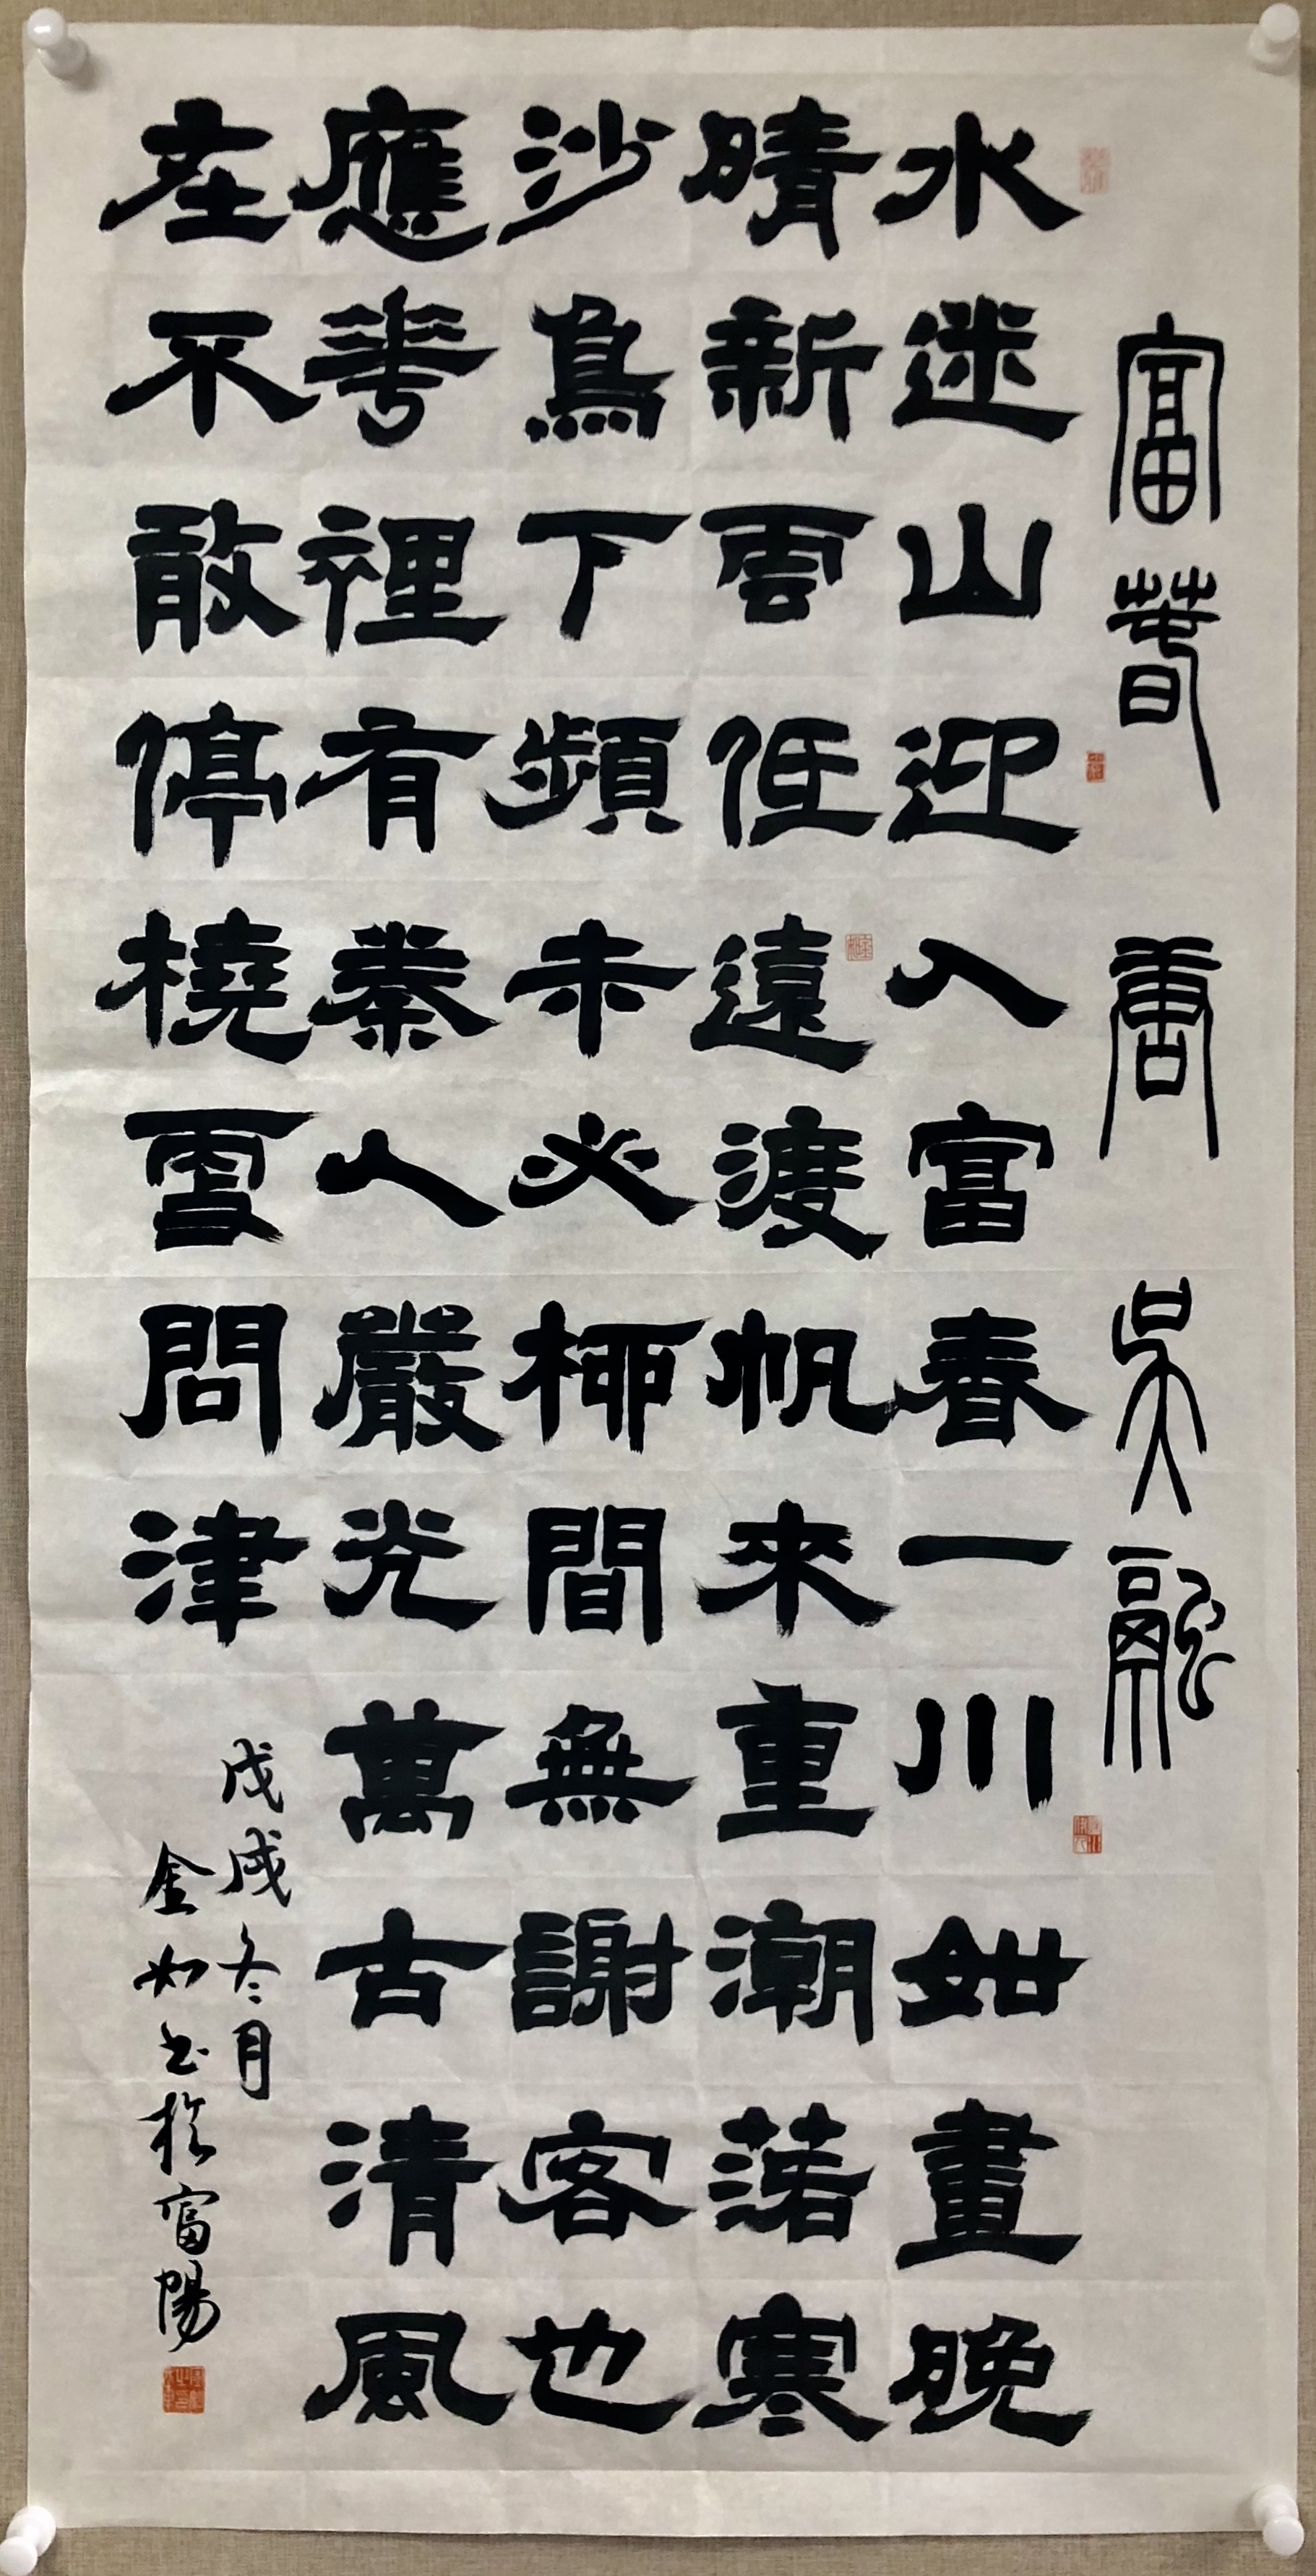 富春 唐 吳融
水迷山迎入富春一川如畫晚
晴新雲低遠渡帆來重潮落寒
沙鳥下頻未必柳間無謝客也
應花裡有秦人嚴光萬古清風
在不敢停橈雪問津
戊戌冬月
金如書於富陽